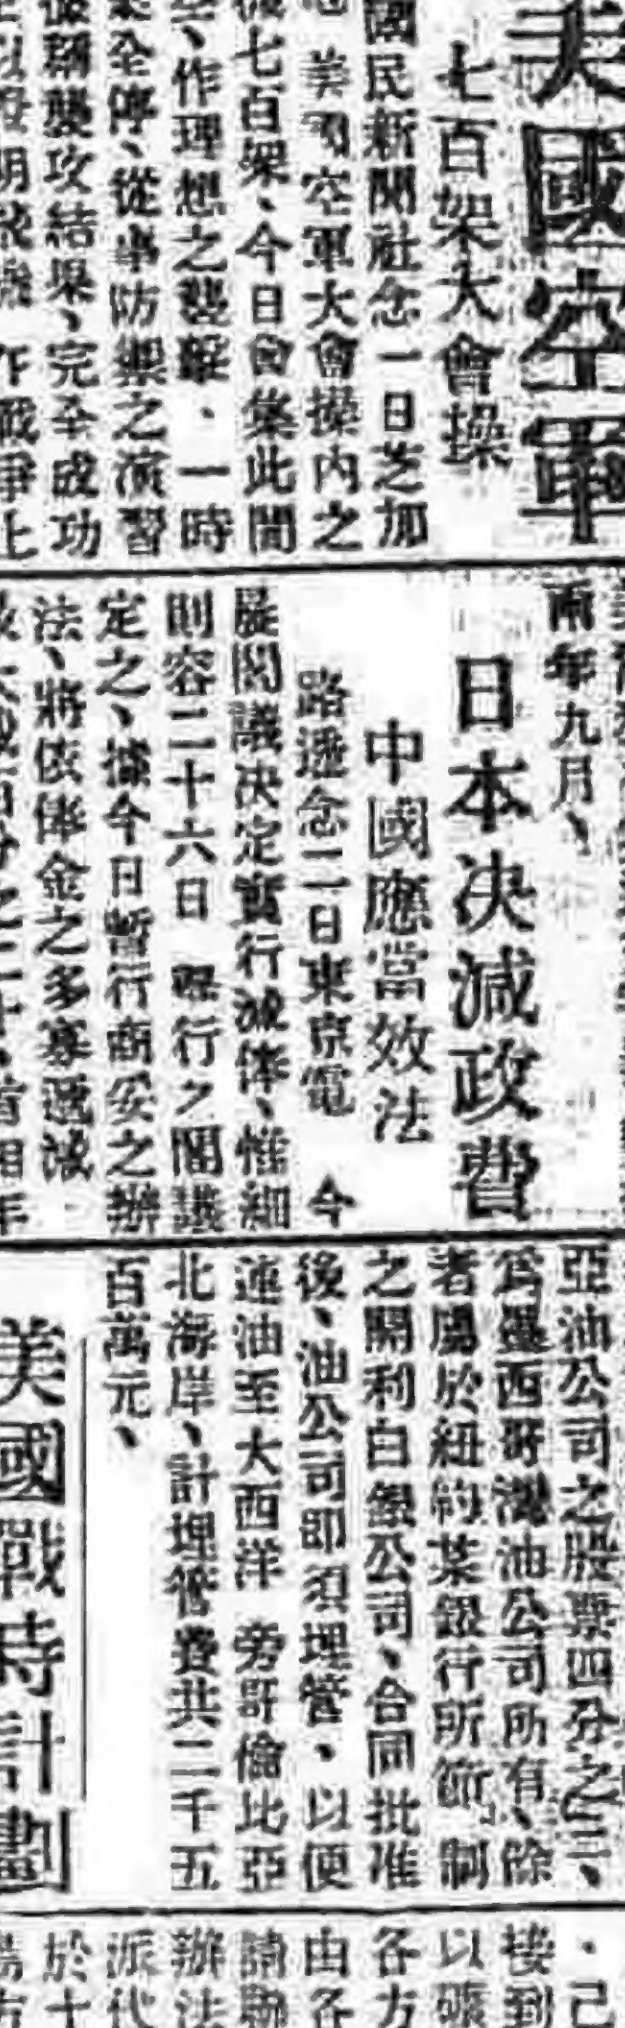 美國空軍
七百架大會操
國民新聞社念一日芝加
美國空軍大會操內之
七百架、今日會集此間
、作理想之襲擊．一時
全停、從事防禦之演習
襲攻結果、完全成功
兩年九月、
日本决減政費
中國應當效法
路透念二日東京電　今
晨閣議决定實行減俸、惟細
則容二十六日　舉行之閣議
定之、據今日暫行商妥之辦
法、將依俸金之多寡遞減
亞油公司之股票四分之三、
爲墨西哥灣油公司所有、餘
者屬於紐約某銀行所節制
之開利白銀公司、合同批准
後、油公司即須埋管．以便
連油至大西洋　旁哥倫比亞
北海岸、計埋管費共二千五
百萬元、
美國戰時計劃
．己
接到
以礦
各方
由各
請聯
辦法
派代
於十